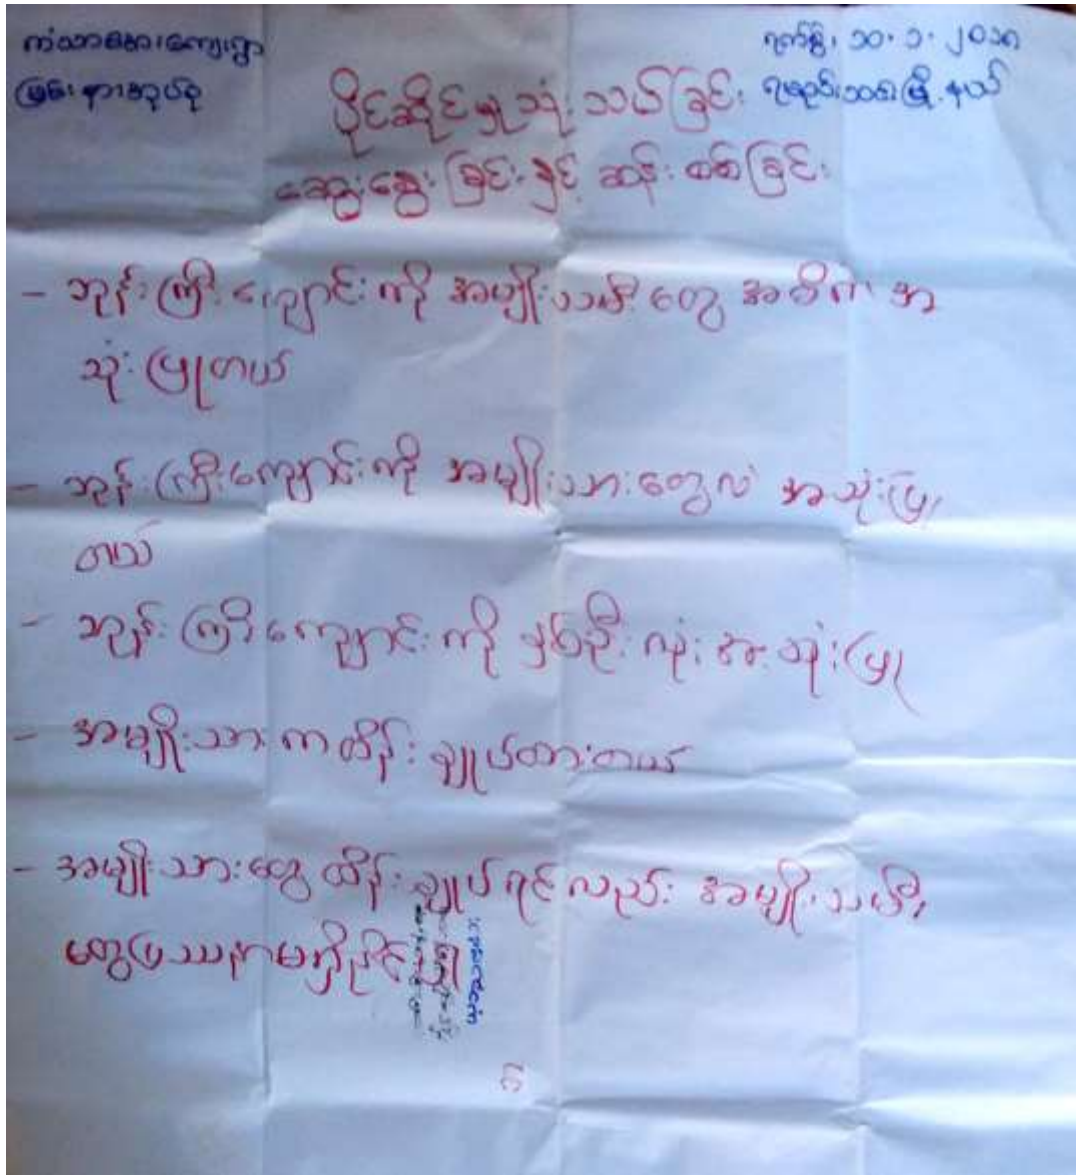 ကံသာဆေးကျေးရွာ
မြင်းနားအုပ်စု
ရက်စွဲ၊ ၁၀.၁.၂၀၁၈
မြို့နယ်
ပိုင်ဆိုင်မှုသုံးသပ်ခြင်း
ဆွေးနွေးခြင်းနှင့် ဆန်းစစ်ခြင်း
- ဘုန်းကြီးကျောင်းကို အမျိုးသမီးတွေ အဓိက အ
သုံးပြုတယ်
- ဘုန်းကြီးကျောင်းကို အမျိုးသားတွေလဲ အသုံးပြု
တယ်
- ဘုန်းကြီးကျောင်းကို နှစ်ဦးလုံးအသုံးပြု
- အမျိုးသားကထိန်းချုပ်ထားတယ်
- အမျိုးသားတွေထိန်းချုပ်ရင်လည်း အမျိုးသမီး
တွေပြဿနာမရှိနိုင်ဘူး